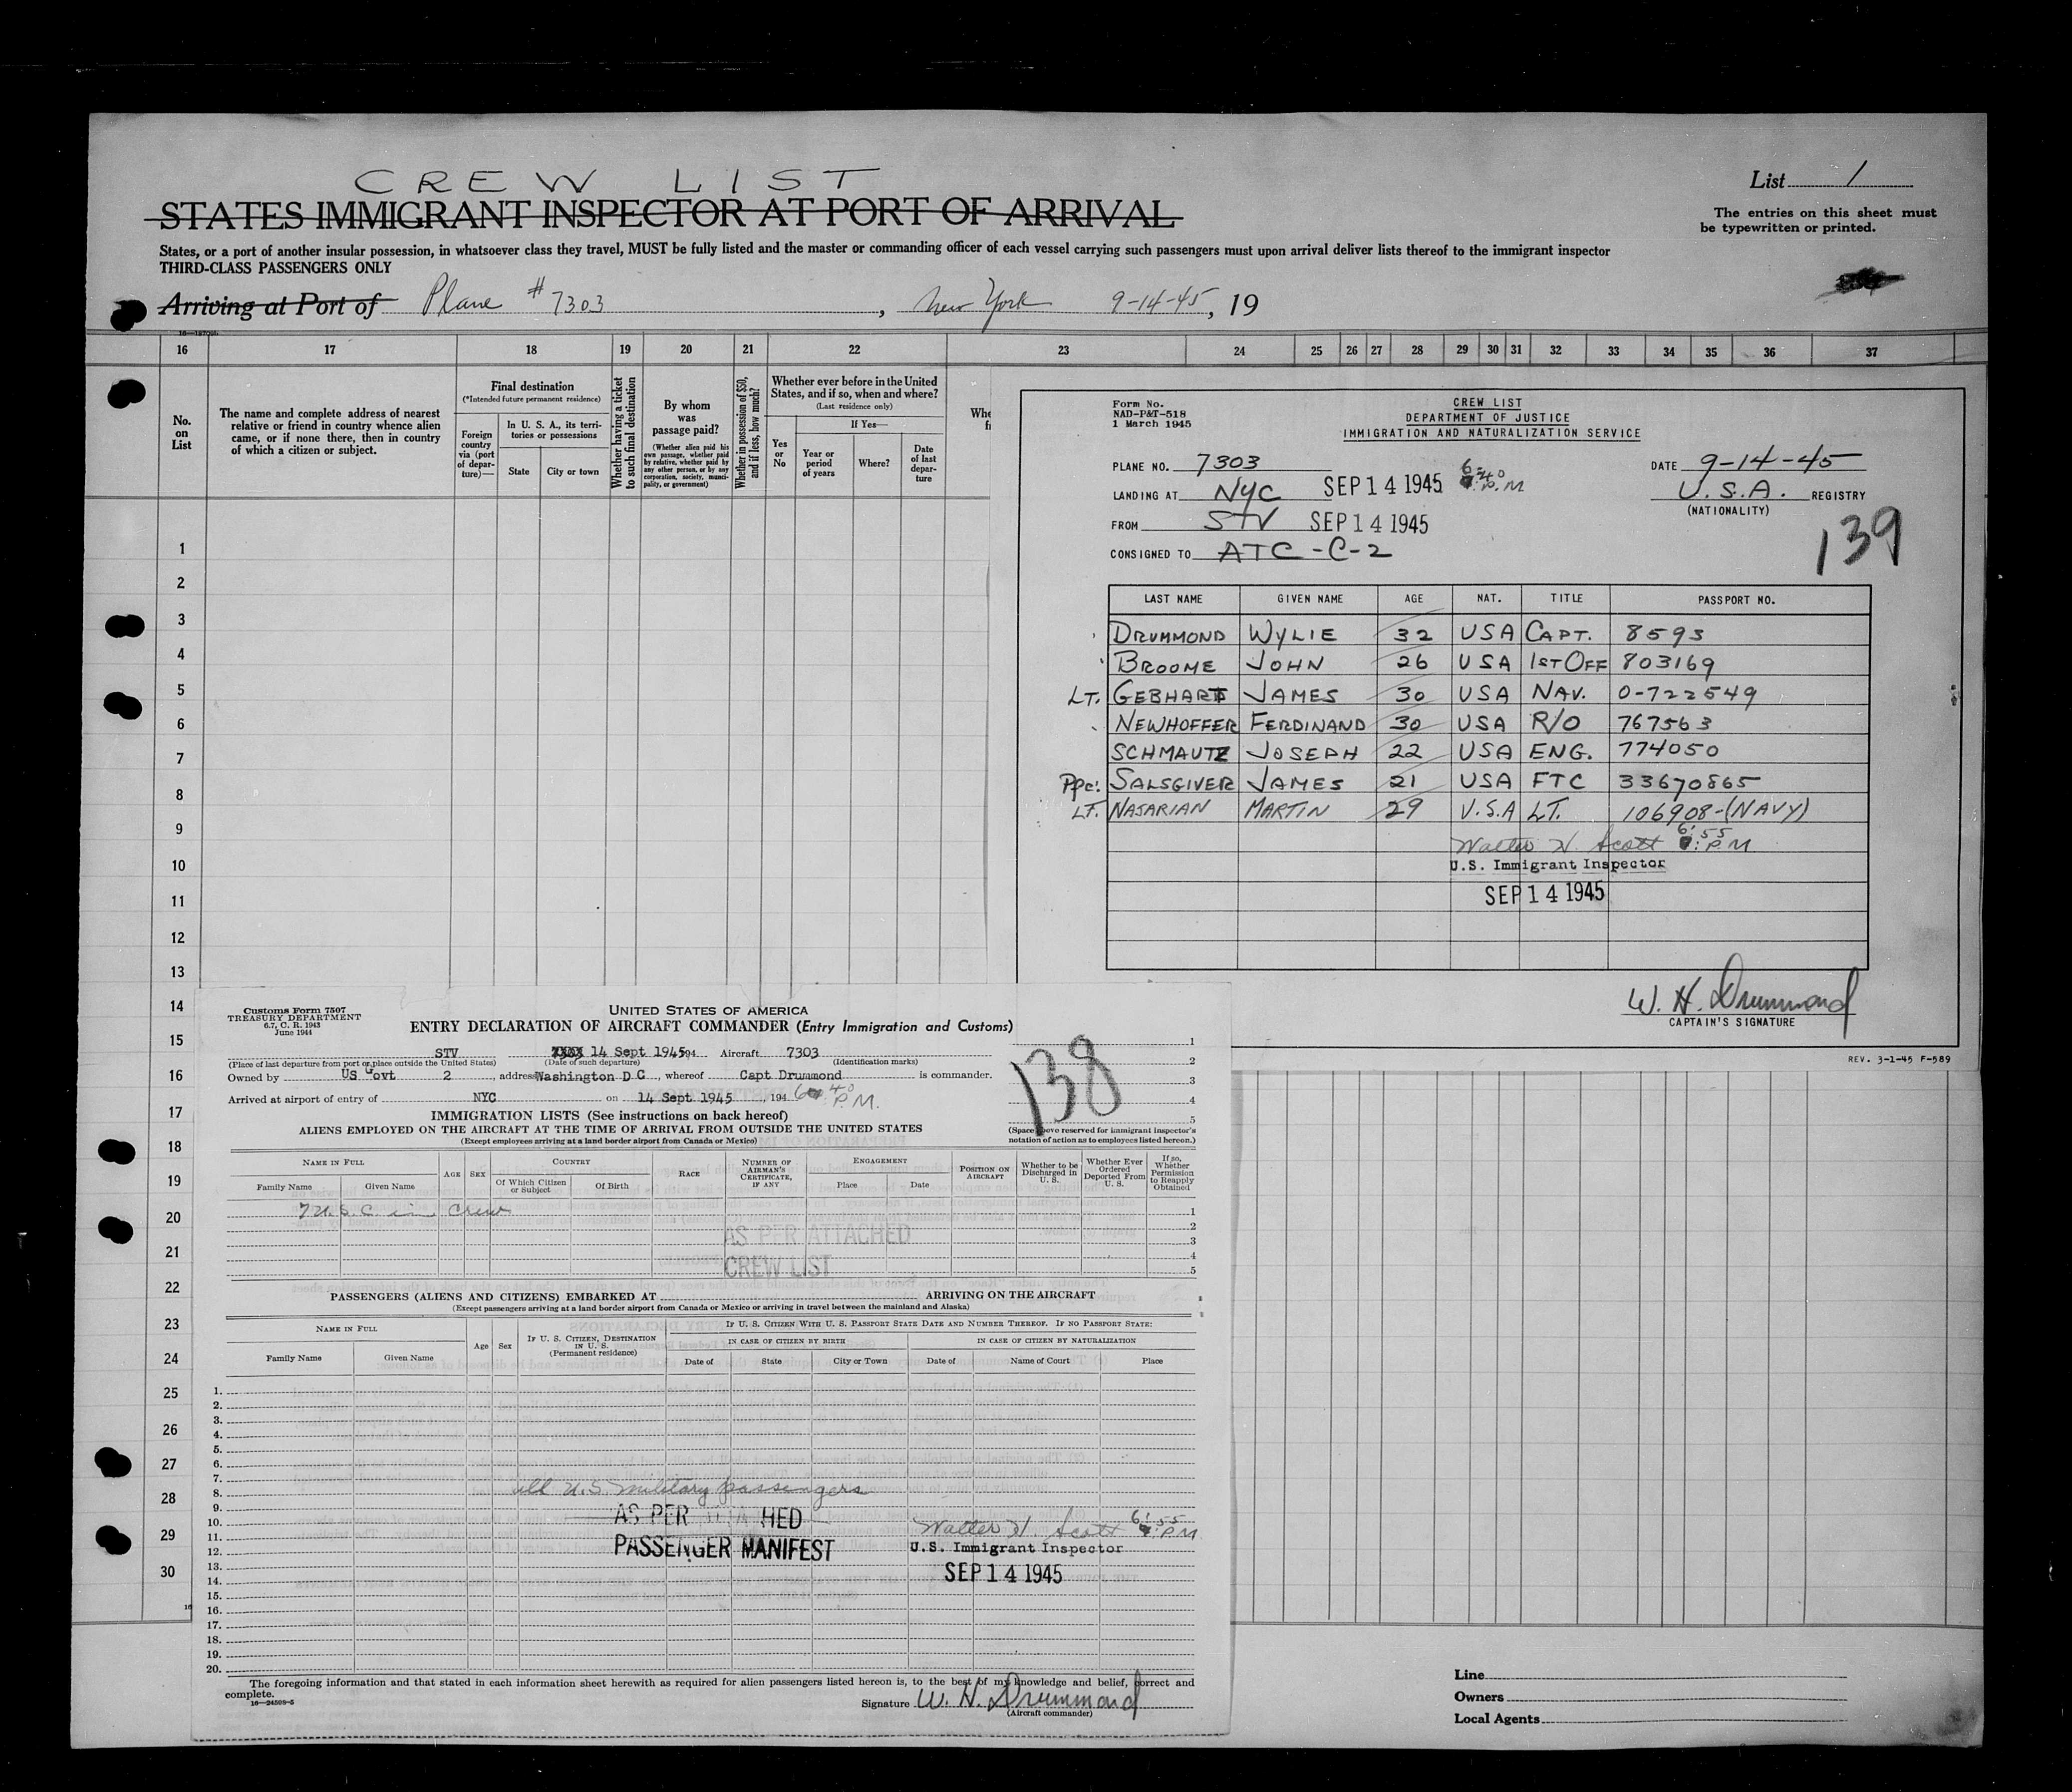 CREW LIST
STATES IMMIGRANT INSPECTOR AT PORT OF ARRIVAL
List 1
The entries on this sheet must
be typewritten or printed.
States, or a port of another insular possession, in whatsoever class they travel, MUST be fully listed and the master or commanding officer of each vessel carrying such passengers must upon arrival deliver lists thereof to the immigrant inspector
THIRD-CLASS PASSENGERS ONLY
Arriving at Port of Plane # 7303, New York 9-14-45, 19
16 17 18 19 20 21 22 23 24 25 26 27 28 29 30 31 32 33 34 35 36 37
No.
on
List
The name and complete address of nearest
relative or friend in country whence alien
came, or if none there, then in country
of which a citizen or subject.
Final destination
(*Intended future permanent residence)
Foreign
country
via (port
of depar-
ture)—
In U. S. A., its terri-
tories or possessions
State City or town
Whether having a ticket
to such final destination
By whom
was
passage paid?
(Whether alien paid his
own passage, whether paid
by relative, whether paid by
any other person, or by any
corporation, society, munici-
pality, or government)
Whether in possession of $50,
and if less, how much?
Whether ever before in the United
States, and if so, when and where?
(Last residence only)
If Yes—
Yes
or
No
Year or
period
of years
Where?
Date
of last
depar-
ture
Whe
1
2
3
4
5
6
7
8
9
10
11
12
13
14
15
16
17
18
19
20
21
22
23
24
25
26
27
28
29
30
Form No.
NAD-P&T-518
1 March 1945
CREW LIST
DEPARTMENT OF JUSTICE
IMMIGRATION AND NATURALIZATION SERVICE
PLANE NO. 7303
DATE 9-14-45
LANDING AT NYC SEP 14 1945 6:40 P.M
U.S.A. REGISTRY
(NATIONALITY)
FROM STV SEP 14 1945
139
CONSIGNED TO ATC-C-2
LAST NAME GIVEN NAME AGE NAT. TITLE PASSPORT NO.
DRUMMOND WYLIE 32 USA CAPT. 8593
BROOME JOHN 26 USA 1ST OFF 803169
LT. GEBHART JAMES 30 USA NAV. 0-722549
NEWHOFFER FERDINAND 30 USA R/O 767563
SCHMAUTZ JOSEPH 22 USA ENG. 774050
Pfc. SALSGIVER JAMES 21 USA FTC 33670865
LT. NASARIAN MARTIN 29 U.S.A LT. 106908-(NAVY)
Walter H. Scott 6:55 PM
U.S. Immigrant Inspector
SEP 14 1945
W. H. Drummond
CAPTAIN'S SIGNATURE
REV. 3-1-45 F-589
Customs Form 7507
TREASURY DEPARTMENT
6.7, C. R. 1943
June 1944
UNITED STATES OF AMERICA
ENTRY DECLARATION OF AIRCRAFT COMMANDER (Entry Immigration and Customs)
STV 14 Sept 1945 194 Aircraft 7303
(Place of last departure from port or place outside the United States) (Date of such departure) (Identification marks)
Owned by US Govt 2, address Washington D C, whereof Capt Drummond is commander.
Arrived at airport of entry of NYC on 14 Sept 1945, 194 6:40 P.M.
138
1
2
3
4
5
(Space above reserved for immigrant inspector's
notation of action as to employees listed hereon.)
IMMIGRATION LISTS (See instructions on back hereof)
ALIENS EMPLOYED ON THE AIRCRAFT AT THE TIME OF ARRIVAL FROM OUTSIDE THE UNITED STATES
(Except employees arriving at a land border airport from Canada or Mexico)
NAME IN FULL
Family Name Given Name
AGE SEX
COUNTRY
Of Which Citizen
or Subject
Of Birth
RACE
NUMBER OF
AIRMAN'S
CERTIFICATE,
IF ANY
ENGAGEMENT
Place Date
POSITION ON
AIRCRAFT
Whether to be
Discharged in
U. S.
Whether Ever
Ordered
Deported From
U. S.
If so,
Whether
Permission
to Reapply
Obtained
7 U.S.C. in Crew
1
2
3
4
5
AS PER ATTACHED
CREW LIST
PASSENGERS (ALIENS AND CITIZENS) EMBARKED AT ARRIVING ON THE AIRCRAFT
(Except passengers arriving at a land border airport from Canada or Mexico or arriving in travel between the mainland and Alaska)
NAME IN FULL
Family Name Given Name
Age Sex
IF U. S. CITIZEN, DESTINATION
IN U. S.
(Permanent residence)
IF U. S. CITIZEN WITH U. S. PASSPORT STATE DATE AND NUMBER THEREOF. IF NO PASSPORT STATE:
IN CASE OF CITIZEN BY BIRTH IN CASE OF CITIZEN BY NATURALIZATION
Date of State City or Town Date of Name of Court Place
1.
2.
3.
4.
5.
6.
7.
8.
9.
10.
11.
12.
13.
14.
15.
16.
17.
18.
19.
20.
all U.S. military passengers
AS PER HED
PASSENGER MANIFEST
Walter H Scott 6:55 PM
U.S. Immigrant Inspector
SEP 14 1945
The foregoing information and that stated in each information sheet herewith as required for alien passengers listed hereon is, to the best of my knowledge and belief, correct and
complete.
16—24598-5
Signature W. H. Drummond
(Aircraft commander)
Line
Owners
Local Agents